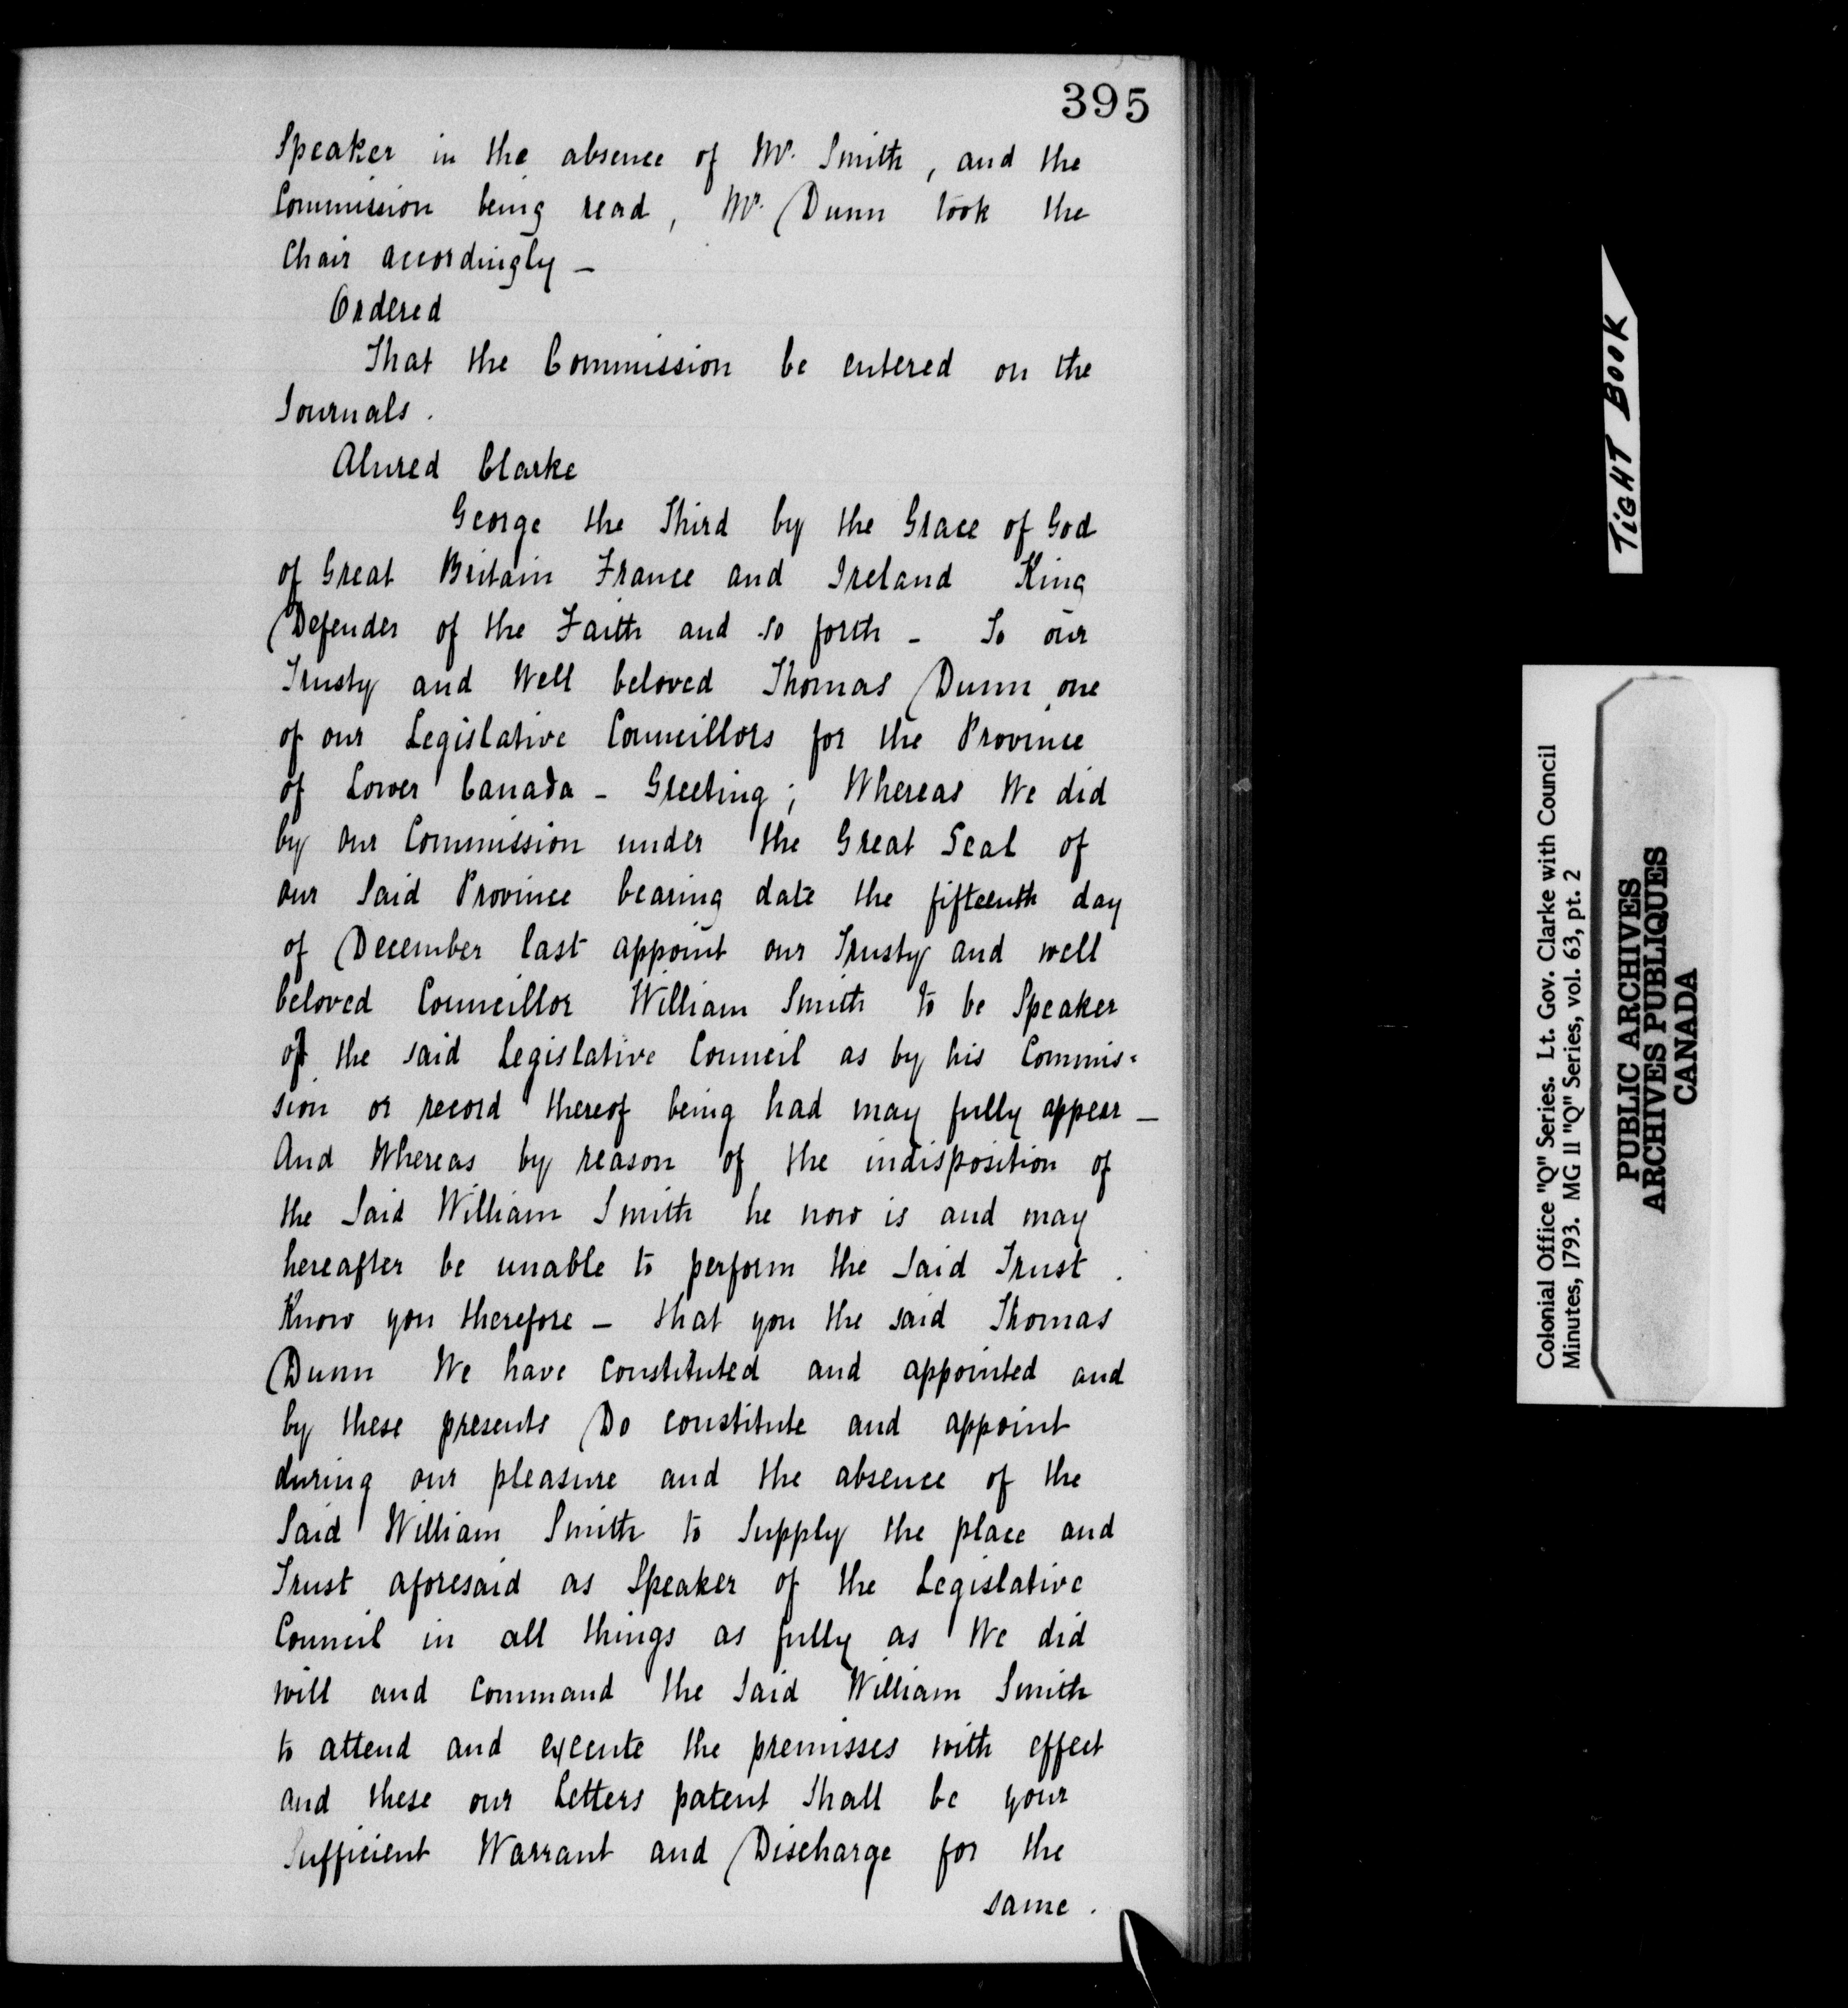 395
Speaker in the absence of Mr. Smith, and the
Commission being read, Mr. Dunn took the
Chair accordingly —
Ordered
That the Commission be entered on the
Journals.
Alured Clarke
George the Third by the Grace of God
of Great Britain France and Ireland King
Defender of the Faith and so forth - To our
Trusty and Well beloved Thomas Dunn, one
of our Legislative Councillors for the Province
of Lower Canada - Greeting; Whereas We did
by our Commission under the Great Seal of
our Said Province bearing date the fifteenth day
of December last appoint our Trusty and well
beloved Councillor William Smith to be Speaker
of the said Legislative Council as by his Commis-
sion or record thereof being had may fully appear —
And Whereas by reason of the indisposition of
the Said William Smith he now is and may
hereafter be unable to perform the Said Trust.
Know you therefore — that you the said Thomas
Dunn We have constituted and appointed and
by these presents Do constitute and appoint
during our pleasure and the absence of the
Said William Smith to Supply the place and
Trust aforesaid as Speaker of the Legislative
Council in all things as fully as We did
will and command the Said William Smith
to attend and execute the premisses with effect
and these our Letters patent Shall be your
Sufficient Warrant and Discharge for the
same.
TIGHT BOOK
Colonial Office "Q" Series. Lt. Gov. Clarke with Council
Minutes, 1793. MG 11 "Q" Series, vol. 63, pt. 2
PUBLIC ARCHIVES
ARCHIVES PUBLIQUES
CANADA